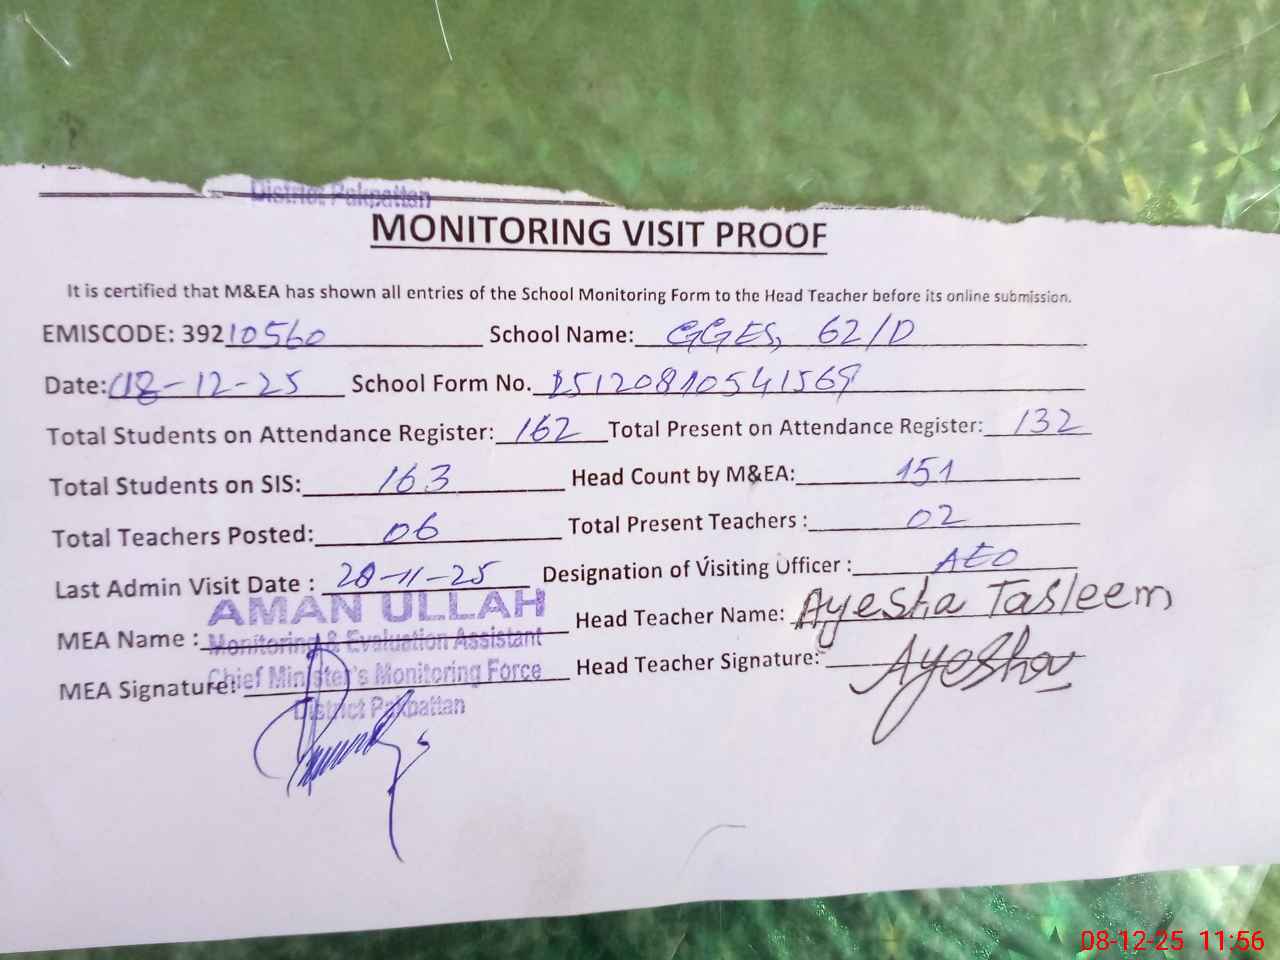 District Pakpattan
MONITORING VISIT PROOF
It is certified that M&EA has shown all entries of the School Monitoring Form to the Head Teacher before its online submission.
EMISCODE: 39210560 School Name: GGES, 62/D
Date: 08-12-25 School Form No. 15120810541569
Total Students on Attendance Register: 162 Total Present on Attendance Register: 132
Total Students on SIS: 163 Head Count by M&EA: 151
Total Teachers Posted: 06 Total Present Teachers : 02
Last Admin Visit Date : 28-11-25 Designation of Visiting Officer : AEO
AMAN ULLAH
MEA Name : Monitoring & Evaluation Assistant Head Teacher Name: Ayesha Tasleem
MEA Signature: Chief Minister's Monitoring Force Head Teacher Signature: Ayesha
District Pakpattan
08-12-25 11:56